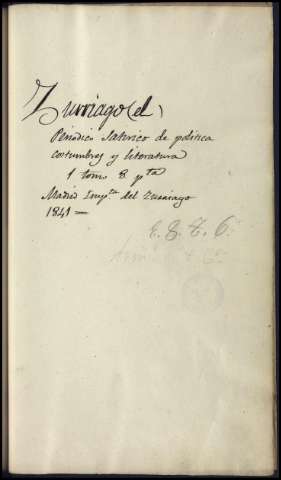 Zurriago (el)
Periodico Satirico de politica
costumbres y literatura
1 tomo 8 pta
Madrid Impta del Zurriago
1841 =
E. 8. t. 6.